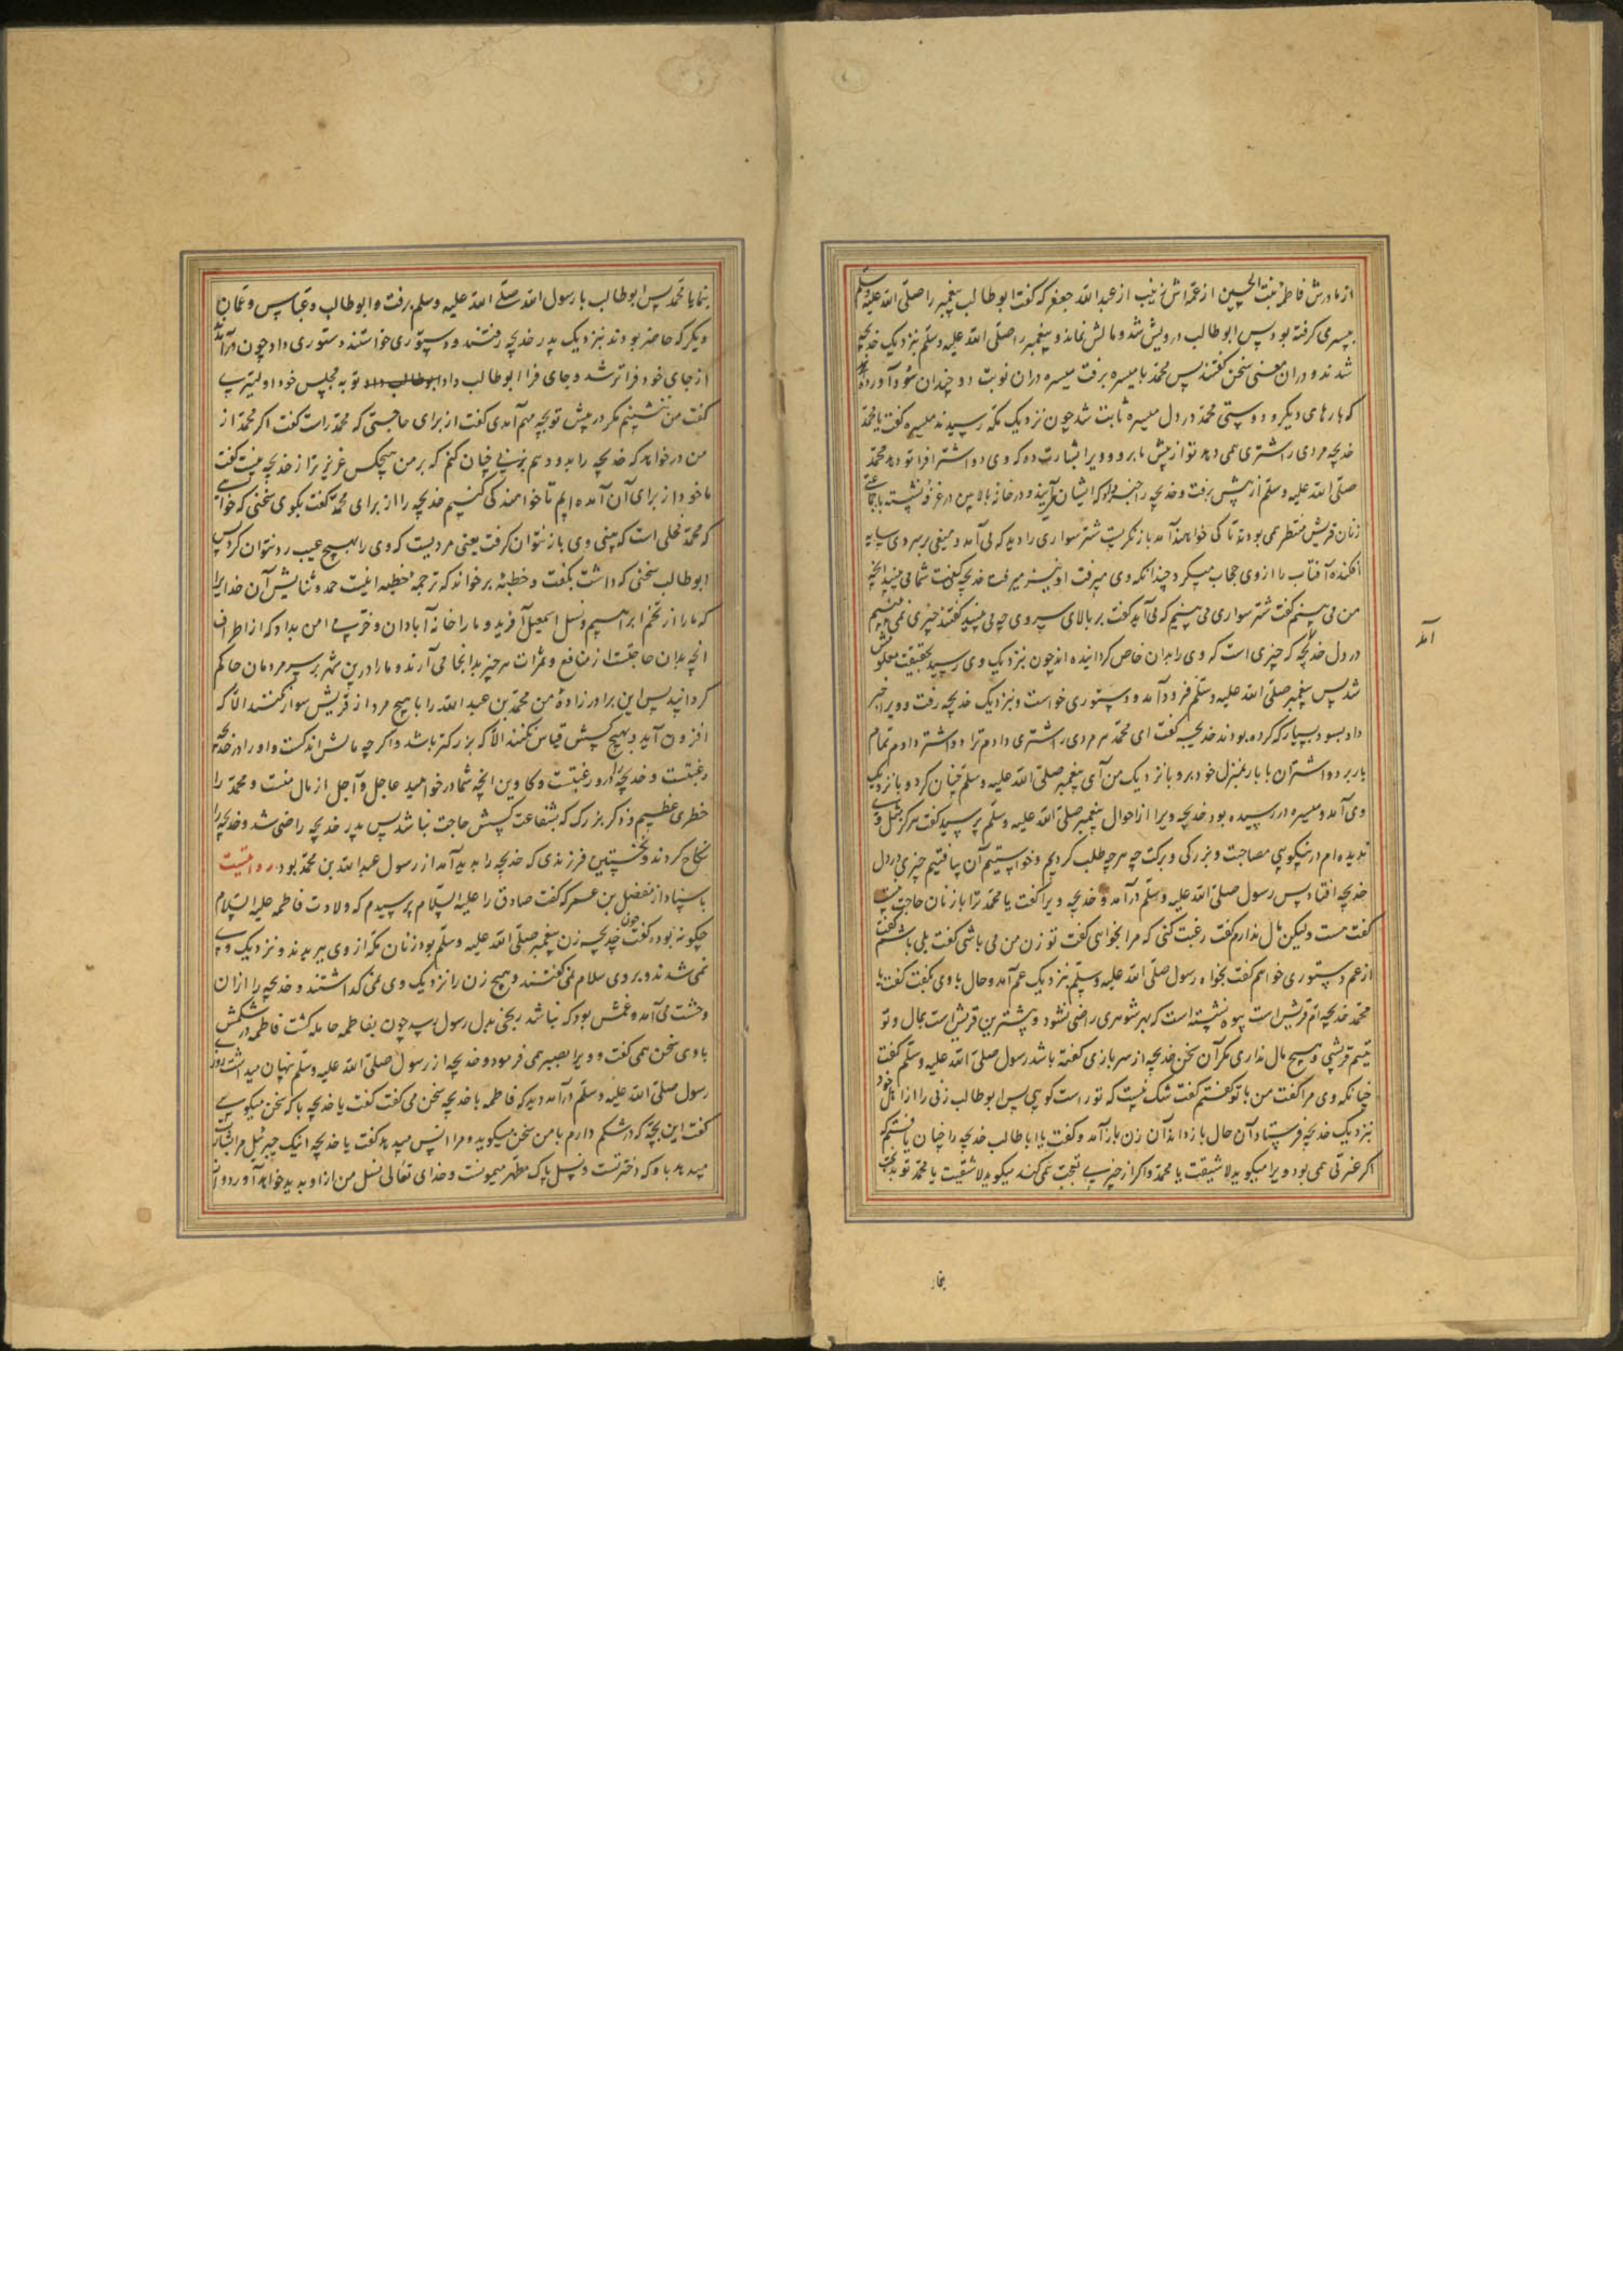 از مادرش فاطمه بنت الحسین از عمه‌اش زینب از عبدالله جعفر که گفت ابوطالب پیغمبر را صلّی الله علیه وسلّم
بپسری گرفته بود پس ابوطالب درویش شد و مالش نماند و پیغمبر صلّی الله علیه وسلّم بنزدیک خدیجه
شدند و دران معنی سخن گفتند پس محمد با میسره برفت میسره دران نوبت دو چندان سود آورد
که بارهای دیگر و دوستی محمد در دل میسره ثابت شد چون نزدیک مکه رسیدند میسره گفت یا محمد
خدیجه مردی را شتری همی دهد تو از پیش ما برو و ویرا بشارت ده که وی دو اشتر فرا تو دهد محمد
صلّی الله علیه وسلّم از پیش برفت و خدیجه را خبر بود که ایشان آیند و در خانه بالایین در غرفه نشسته با جماعتی
زنان قریش منتظر می بودند تا کی خواهند آمد باز نکریست شتر سواری را دید که می آمد و میغی بر سر وی سایه
افکنده آفتاب را از وی حجاب میکرد چندانکه وی میرفت او نیز میرفت خدیجه گفت شما می بینید آنچه
من می بینم گفت شتر سواری می بینیم که می آید گفت بر بالای سر وی چه می بینید گفتند چیزی نمی بینیم
در دل خدیجه آمد که چیزی است که وی را بدان خاص گردانیده اند چون بنزدیک وی رسید بحقیقت معلومش
شد پس پیغمبر صلّی الله علیه وسلّم فرود آمد و دستوری خواست و بنزدیک خدیجه رفت و ویرا خبر
داد بسود بسیار که کرده بودند خدیجه گفت ای محمد هر مردی را شتری دادم ترا دو اشتر دادم تمام
بار برد و اشتران با بار بمنزل خود برو و بازنزدیک من آی پیغمبر صلّی الله علیه وسلّم چنان کرد و بازنزدیک
وی آمد و میسره در رسیده بود خدیجه ویرا از احوال پیغمبر صلّی الله علیه وسلّم پرسید گفت هرگز مثل وی
ندیده ام در نیکویی مصاحبت و بزرگی و برکت چه هر چه طلب کردیم و خواستیم آن یافتیم چیزی در دل
خدیجه افتاد پس رسول صلّی الله علیه وسلّم درآمد و خدیجه ویرا گفت یا محمد ترا با زنان حاجت نیست
گفت هست ولیکن مال ندارم گفت رغبت کنی که مرا بخواهی گفت تو زن من می باشی گفت بلی باشم گفت
از عم دستوری خواهم گفت بخواه رسول صلّی الله علیه وسلّم بنزدیک عم آمد و حال با وی بگفت گفت یا
محمد خدیجه ام قریش است بیوه نشسته است که بهر شوهری راضی نشود و بیشترین قریش است بمال و تو
یتیم قریشی و هیچ مال نداری مگر آن سخن خدیجه از سر بازی گفته باشد رسول صلّی الله علیه وسلّم گفت
چنانکه وی مرا گفت من با تو گفتم گفت شک نیست که تو راست گویی پس ابوطالب زنی را از اهل خود
بنزدیک خدیجه فرستاد آن حال بازداند آن زن باز آمد و گفت یا ابا طالب خدیجه را چنان یافتم که
اگر عثرتی همی بود ویرا میگوید لا شقیت یا محمد و اگر از چیزی تعجب همی کند میگوید لا شقیت یا محمد تو بدیجت
آمد
بنما
بنما یا محمد پس ابوطالب با رسول الله صلّی الله علیه وسلّم برفت و ابوطالب و عباس و عمان
دیگر که حاضر بودند بنزدیک پدر خدیجه رفتند و دستوری خواستند دستوری داد چون درآمدند
از جای خود فراتر شد و جای فرا ابوطالب داد ابوطالب داد تو به مجلس خود اولیتری
گفت من ننشینم مگر در پیش تو بچه مهم آمدی گفت از برای حاجتی که محمد راست گفت اگر محمد از
من درخواهد که خدیجه را بدو دهم بزنی چنان کنم که بر من هیچکس عزیزتر از خدیجه نیست گفت
ما خود از برای آن آمده ایم تا خواهندگی کنیم خدیجه را از برای محمد گفت بگوی سخنی که خواهی
که محمد فحلی است که بینی وی باز نتوان گرفت یعنی مردیست که وی را بهیچ عیب رد نتوان کرد پس
ابوطالب سخنی که داشت بگفت و خطبه برخواند که ترجمه خطبه اینست حمد و ثنایش آن خدایرا
که ما را از تخم ابراهیم و نسل اسمعیل آفرید و ما را خانه آبادان و حرمی امن بداد که از اطراف
آنچه بدان حاجتست از منافع و ثمرات هر چیز بدانجا می آرند و ما را درین شهر بر سر مردمان حاکم
گردانید پس این برادرزاده من محمد بن عبدالله را با هیچ مرد از قریش موازنه نکنند الا که
افزون آید و بهیچ کسش قیاس نکنند الا که بزرگتر باشد و اگر چه مالش اندکست و او را در خدیجه
رغبتست و خدیجه را درو رغبتست و کاوین آنچه شما درخواهید عاجل و آجل از مال منست و محمد را
خطری عظیم و ذکر بزرگ که بشفاعت کسش حاجت نباشد پس پدر خدیجه راضی شد و خدیجه را
نکاح کردند و نخستین فرزندی که خدیجه را پدید آمد از رسول عبدالله بن محمد بود روایتست
باسناد از مفضل بن عمر که گفت صادق را علیه السلام پرسیدم که ولادت فاطمه علیه السلام
چگونه بود گفت چون خدیجه زن پیغمبر صلّی الله علیه وسلّم بود زنان مکه از وی ببریدند و نزدیک وی
نمی شدند و بر وی سلام نمی گفتند و هیچ زن را نزدیک وی نمی گذاشتند و خدیجه را ازان
وحشت می آمد و غمش بود که نباشد رنجی بدل رسول رسد چون بفاطمه حامله گشت فاطمه در شکمش
با وی سخن همی گفت و ویرا بصبر همی فرمود و خدیجه از رسول صلّی الله علیه وسلّم نهان میداشت روزی
رسول صلّی الله علیه وسلّم درآمد دید که فاطمه با خدیجه سخن می گفت گفت یا خدیجه با که سخن میگویی
گفت این بچه که در شکم دارم با من سخن میگوید و مرا انس میدهد گفت یا خدیجه اینک جبرئیل مرا بشارت
میدهد باو که دخترتست و نسل پاک مطهر میمونست و خدای تعالی نسل من از او پدید خواهد آورد و از